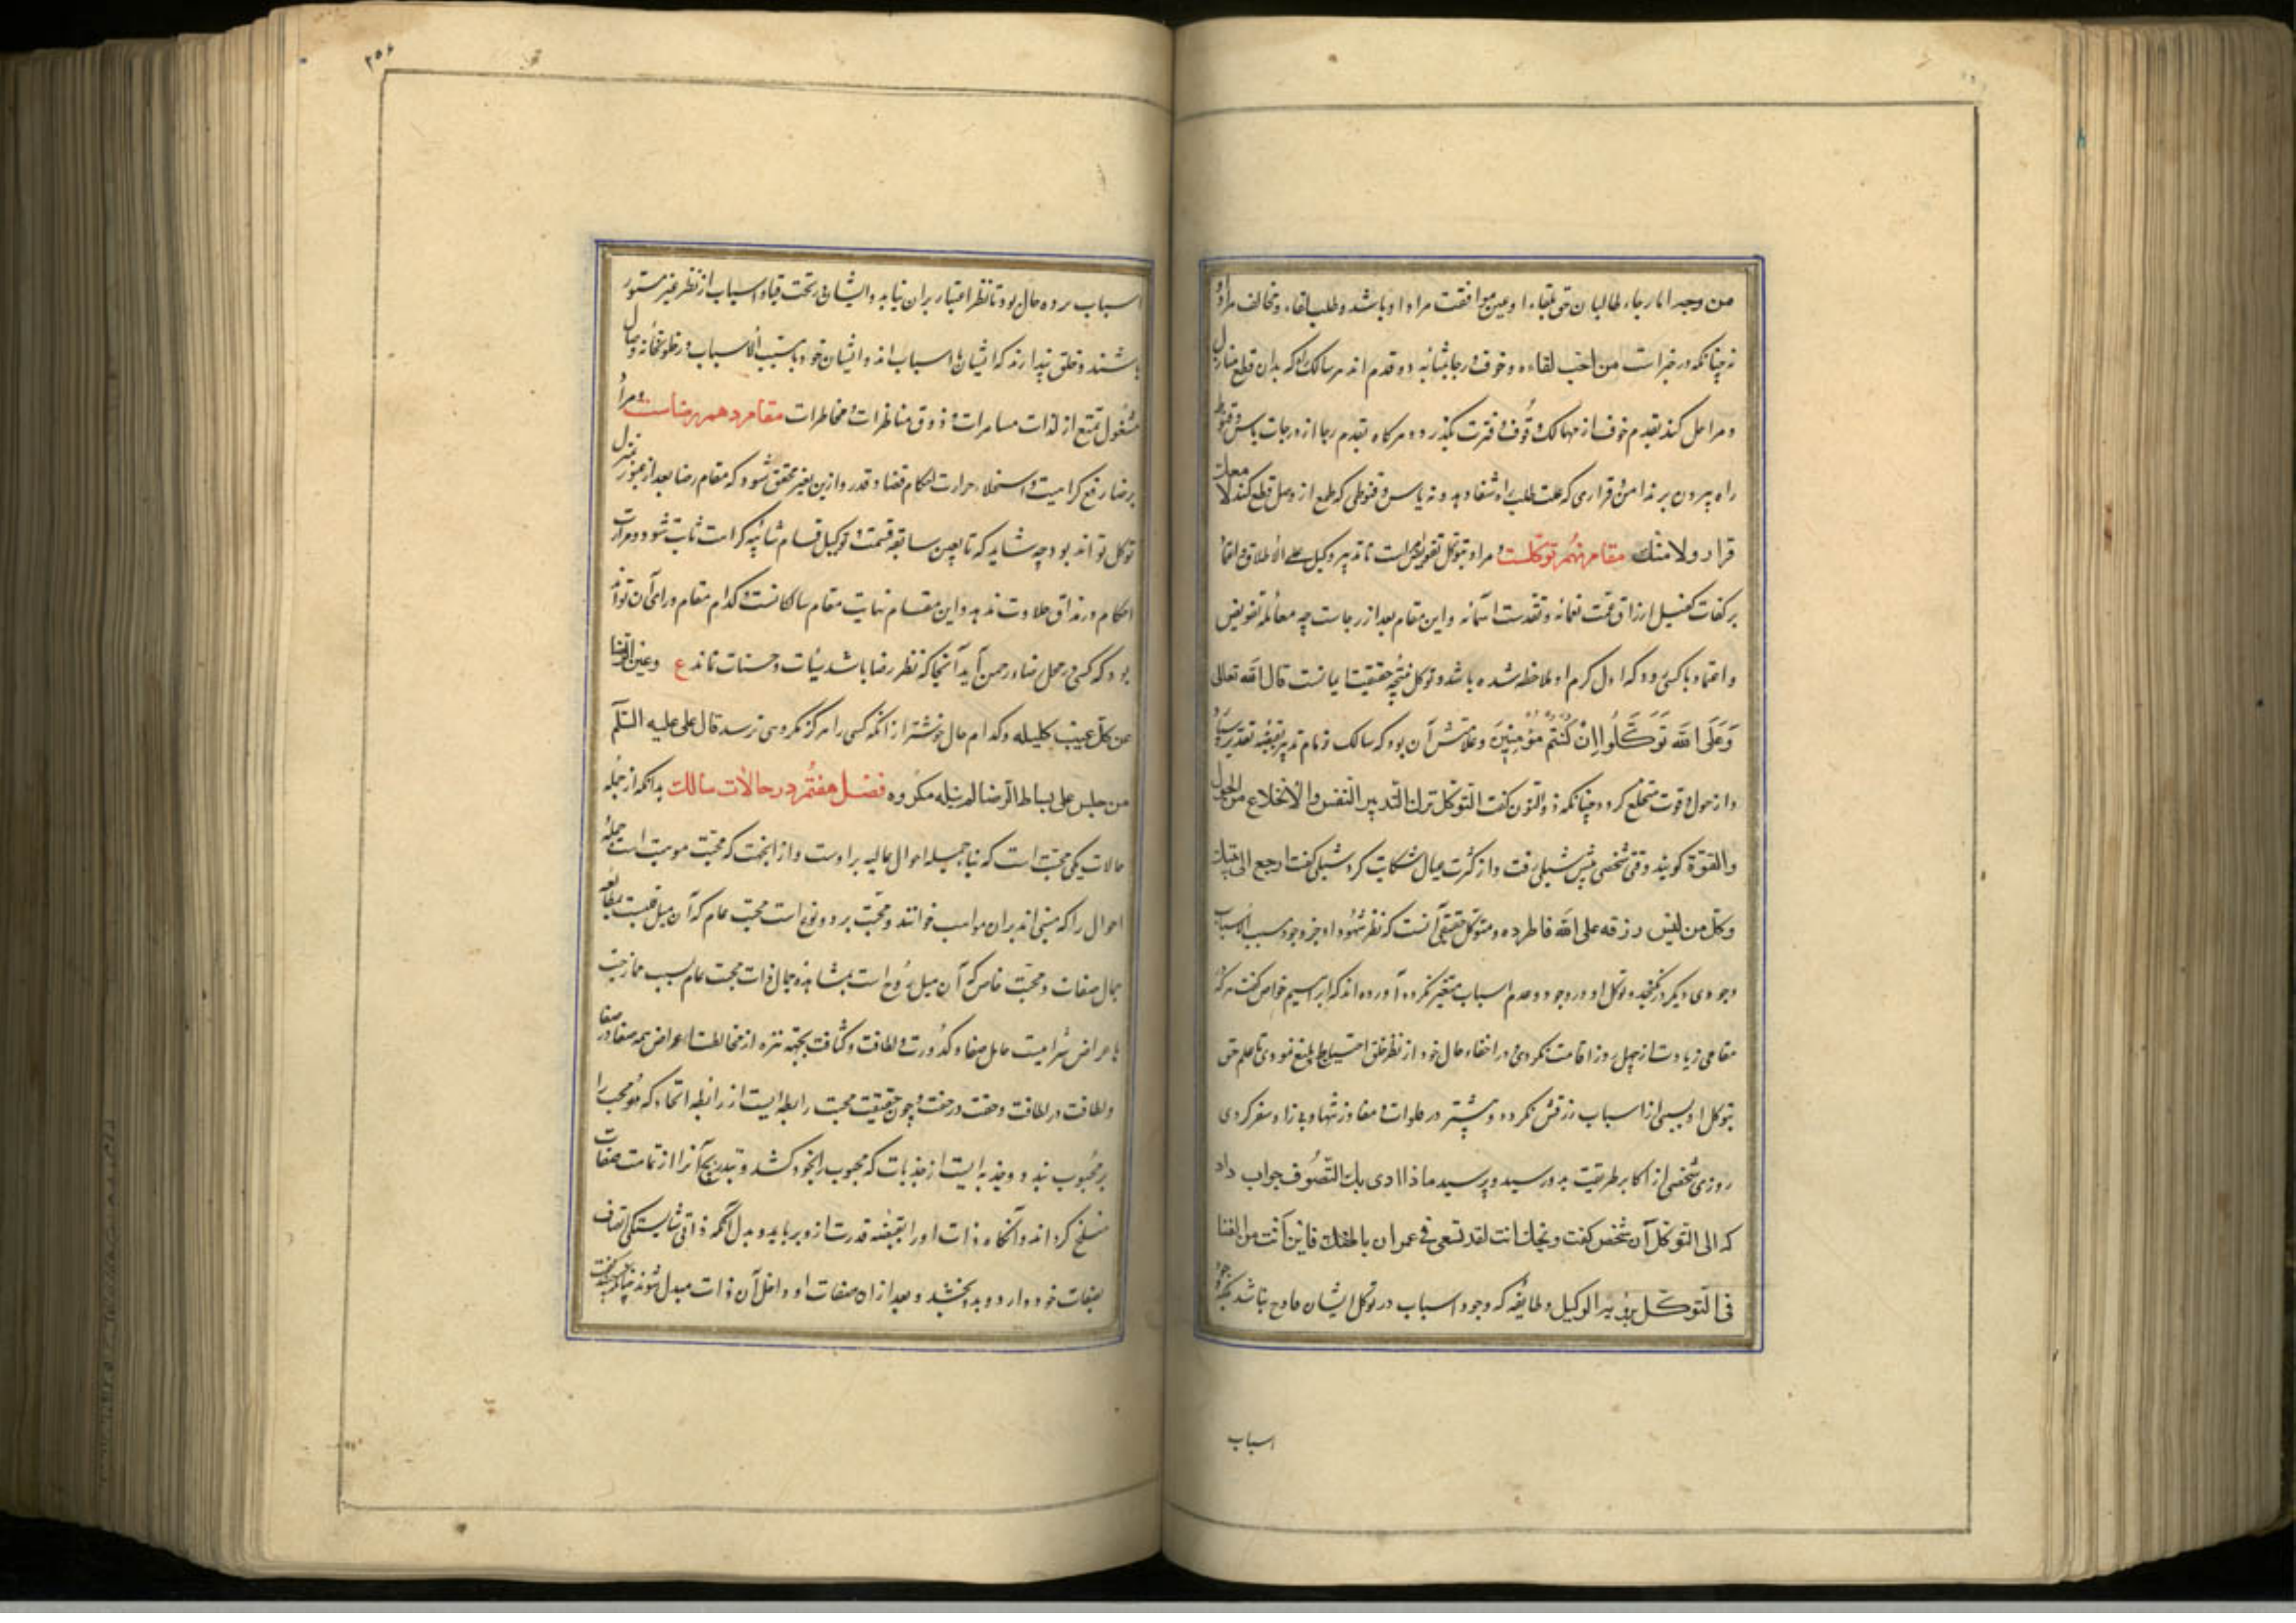 من وجه اما رجاء طالبان حق بلقاء او عین موافقت مراد او باشد و طلب لقاء و مخالف مراد
نه چنانکه در خبر است من احب لقاءه و خوف و رجا بمثابه دو قدم اند مر سالک را که بدان قطع منازل
و مراحل کند بقدم خوف از مهالک وقوف و فترت بگذرد و مرگاه بقدم رجا از درجات یاس و قنوط
راه بیرون برد نه امن و قراری که علت طلب را شفا دهد و نه یاس و قنوطی که طمع از وصل قطع کند لا معک
قرار ولا منک مقام نهم توکلست و مراد بتوکل تفویض امر است با تدبیر وکیل علی الاطلاق و اعتماد
بر کفالت کفیل ارزاق عمت نعمائه و تقدست اسمائه و این مقام بعد از رجاست چه معامله تفویض
و اعتماد با کسی رود که اول کرم او ملاحظه شده باشد و توکل نتیجه حقیقت ایمانست قال الله تعالی
وَعَلَی اللّه تَوَکَّلُوا اِنْ کُنْتُمْ مُؤْمِنِینَ و علامتش آن بود که سالک زمام تدبیر بقبضه تقدیر سپارد
و از حول و قوت منخلع گردد چنانکه ذوالنون گفت التوکل ترک التدبیر النفس والانخلاع من الحول
والقوة گویند وقتی شخصی پیش شبلی رفت و از کثرت عیال شکایت کرد شبلی گفت ارجع الی بیتک
وکل من لیس رزقه علی الله فاطرده و متوکل حقیقی آنست که نظر شهود او جز وجود مسبب الاسباب
وجودی دیگر درنگنجد و توکل او در وجود و عدم اسباب متغیر نگردد آورده اند که ابراهیم خواص گفت هرگز
مقامی زیادت از چهل روز اقامت نکردی و در اخفاء حال خود از نظر خلق احتیاط بلیغ نمودی تا علم حق
بتوکل او سببی از اسباب رزقش نگردد و بیشتر در فلوات و مفاوز تنها و بی زاد سفر کردی
روزی شخصی از اکابر طریقت بدو رسید و پرسید ماذا ادی بک التصوف جواب داد
که الی التوکل آن شخص گفت ویحک انت لقد تسعی فی عمران باطنک فاین انت من الفنا
فی التوکل برؤیة الوکیل و طایفه که وجود اسباب در توکل ایشان قادح نباشد بلکه وجود
اسباب
۲۵۶
اسباب پرده حال بود تا نظر اغیار بران نیاید و ایشان در تحت قباء اسباب از نظر غیر مستور
باشند و خلق پندارند که ایشان با اسباب اند و ایشان خود با مسبب الاسباب در خلوتخانه وصال
مشغول تمتع از لذات مسامرات و ذوق مناظرات و مخاطرات مقام دهم رضاست و مراد
برضا رفع کراهیت و استحلاء مرارت احکام قضا و قدر و ازین تفسیر محقق شود که مقام رضا بعد از عبور منزل
توکل تواند بود چه شاید که تا بعین سابقه قسمت و توکیل قسام شائبه کراهت ثابت شود و مرارت
احکام در مذاق حلاوت ندهد و این مقام نهایت مقام سالکانست و کدام مقام ورای آن تواند
بود که کسی در محل رضاء رحمن آید آنجا که نظر رضا باشد سیئات و حسنات نماند ع و عین الرضا
عن کل عیب کلیله و کدام حال خوشتر از آنکه کسی را هرگز مکروهی نرسد قال علی علیه السلام
من جلس علی بساط الرضا لم ینله مکروه فصل هفتم در حالات سالک بدانکه از جمله
حالات یکی محبت است که بناء جمیله احوال عالیه بر اوست و از انجهت که محبت موهبت است جمله
احوال را که مبنی اند بران مواهب خوانند و محبت بر دو نوع است محبت عام که آن میل قلبست بمطالعه
جمال صفات و محبت خاص که آن میل روح است بمشاهده جمال ذات محبت عام بسبب ممازجت
با عراض شرابیست حامل صفا و کدورت و لطافت و کثافت بجهته تنزه از مخالطت اعراض همه صفا در صفا
و لطافت در لطافت و خفت در خفت و چون حقیقت محبت رابطه ایست از رابطه اتحاد که محب را
بر محبوب بندد و جذبه ایست از جذبات که محبوب را بخود کشد و بتدریج آنرا از تمامت صفات
منسلخ گرداند و آنگاه ذات او را بقبضه قدرت ازو برباید و بدل آنکه ذاتی شایستگی اتصاف
بصفات خود دارد و بدو بخشد و بعد ازان صفات او داخل آن ذات مبدل شوند چنانکه جنید گفت